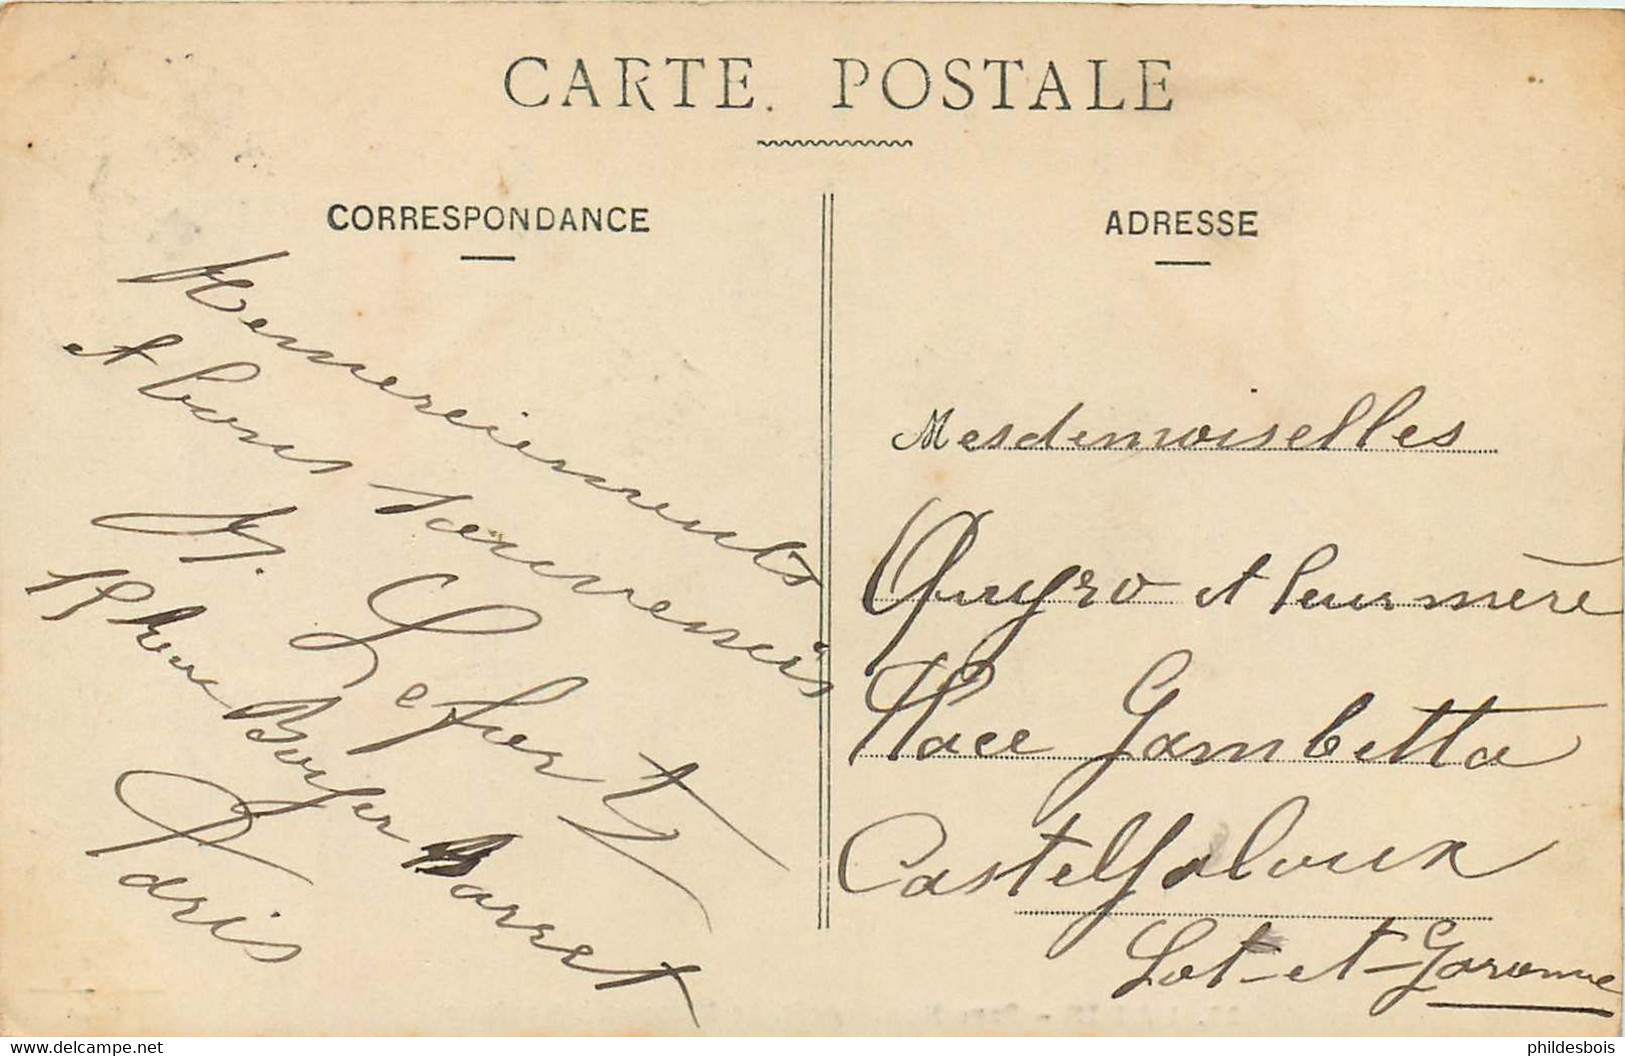 CARTE POSTALE
CORRESPONDANCE
Remerciements
et bons souvenirs
Lefort
Rue Boyer Barret
Paris
ADRESSE
Mesdemoiselles
et leur mère
Place Gambetta
Casteljaloux
Lot-et-Garonne
philesbois - delcampe.net